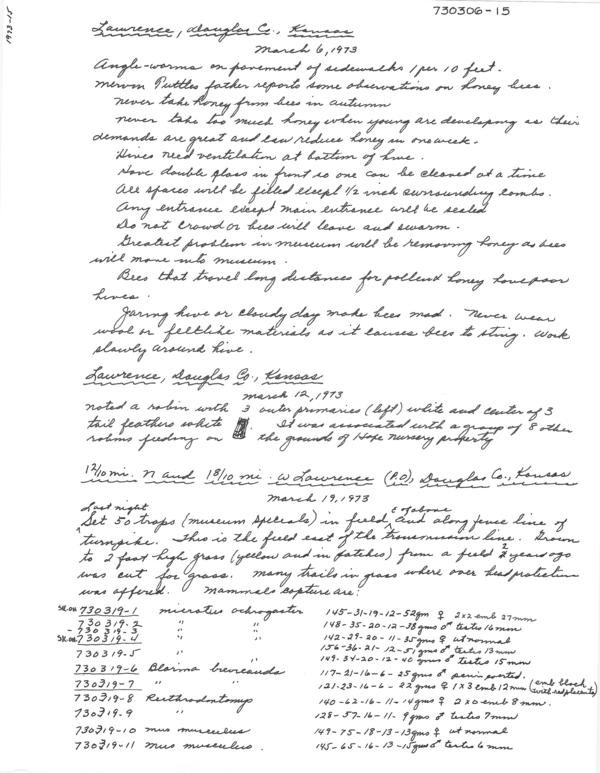 730306-15
1973-15
Lawrence, Douglas Co., Kansas
March 6, 1973
Angle-worms on pavement of sidewalks 1 per 10 feet.
Mervin Puttles father reports some observations on honey bees.
Never take honey from bees in autumn
Never take too much honey when young are developing as their
demands are great and can reduce honey in one week.
Hives need ventilation at bottom of hive.
Have double glass in front so one can be cleaned at a time
All spaces will be filled except 1/2 inch surrounding combs.
Any entrance except main entrance will be sealed
Do not crowd or bees will leave and swarm.
Greatest problem in museum will be removing honey as bees
will move into museum.
Bees that travel long distances for pollen & honey have poor
hives.
Jaring hive or cloudy day make bees mad. Never wear
wool or feltlike materials as it causes bees to sting. Work
slowly around hive.
Lawrence, Douglas Co., Kansas
March 12, 1973
Noted a robin with 3 outer primaries (left) white and center of 3
tail feathers white. It was associated with a group of 8 other
robins feeding on the grounds of Hope Nursery property
12/10 mi. N and 18/10 mi. W Lawrence (P.O.), Douglas Co., Kansas
March 19, 1973
Last night E of above
Set 50 traps (museum specials) in field, and along fence line of
turnpike. This is the field east of the transmission line. Brown
to 2 foot high grass (yellow and in patches) from a field 2 years ago
was cut for grass. Many trails in grass where over head protection
was offered. Mammals capture are:
730319-1 Microtus ochrogaster 145-31-19-12-52gm ♀ 2x2 emb 27mm
730319-2 " " 148-35-20-12-38gms ♂ testis 16mm
730319-3 " " 142-29-20-11-35gms ♀ ut normal
730319-4 " " 156-36-21-12-51gms ♂ testis 13mm
730319-5 " " 149-34-20-12-40gms ♂ testes 15mm
730319-6 Blarina brevicauda 117-21-16-6-25gms ♂ penis everted.
730319-7 " " 121-23-16-6-22gms ♀ 1x3 emb 12mm (emb block with red placenta)
730319-8 Reithrodontomys 140-62-16-11-14gms ♀ 2x0 emb 8mm.
730319-9 " 128-57-16-11-9gms ♂ testes 7mm
730319-10 Mus musculus 149-75-18-13-13gms ♀ ut normal
730319-11 Mus musculus. 145-65-16-13-15gms ♂ testis 6mm